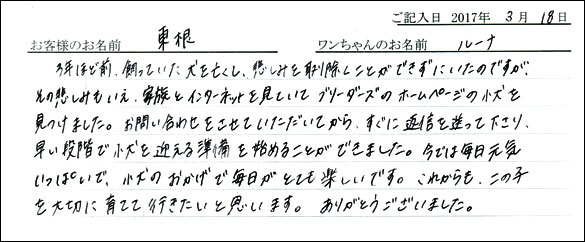 ご記入日 2017年 3月 18日
お客様のお名前 東根 ワンちゃんのお名前 ルーナ
3年ほど前、飼っていた犬を亡くし、悲しみを取り除くことができずにいたのですが、
その悲しみもいえ、家族とインターネットを見ていて ブリーダーズのホームページの小犬を
見つけました。お問い合わせをさせていただいてから、すぐに返信を送って下さり、
早い段階で小犬を迎える準備を始めることができました。今では毎日元気
いっぱいで、小犬のおかげで毎日がとても楽しいです。これからも、この子
を大切に育てて行きたいと思います。ありがとうございました。